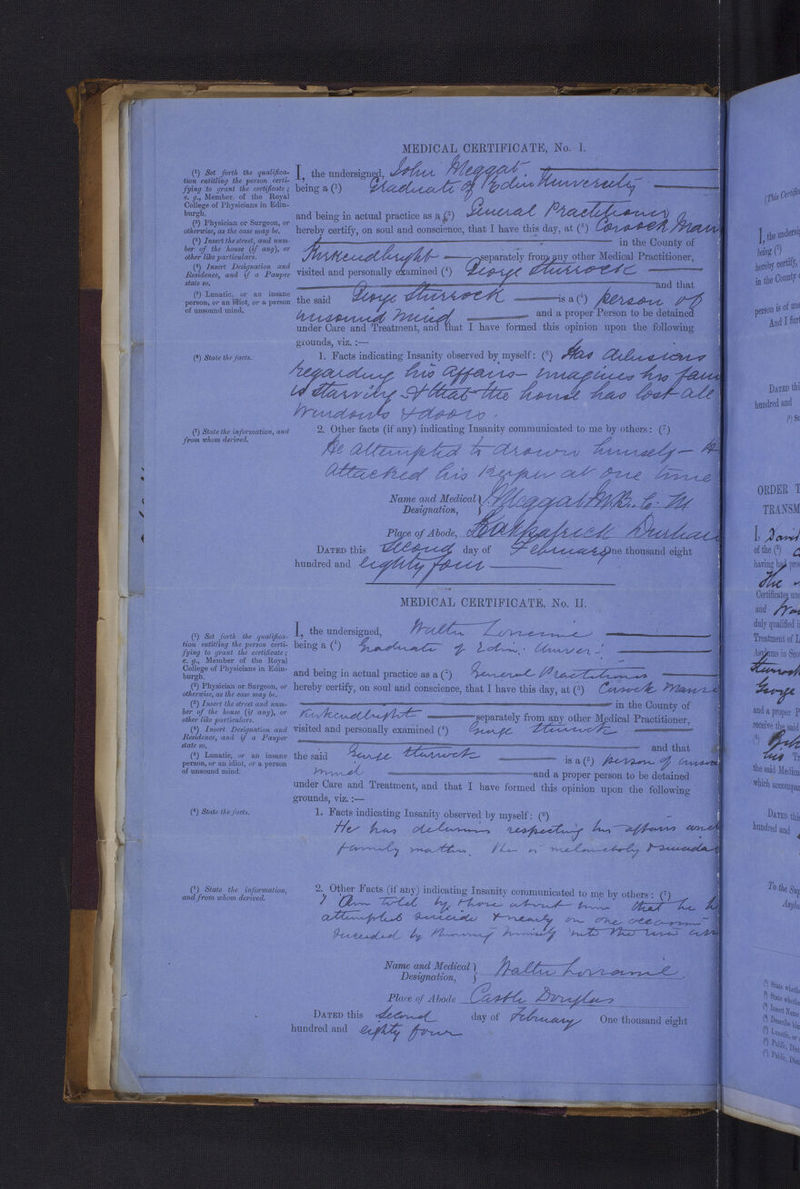 MEDICAL CERTIFICATE, No. I.
(1) Set forth the qualifica-
tion entitling the person certi-
fying to grant the certificate;
e. g., Member of the Royal
College of Physicians in Edin-
burgh.
(2) Physician or Surgeon, or
otherwise, as the case may be.
(3) Insert the street, and num-
ber of the house (if any), or
other like particulars.
(4) Insert Designation and
Residence, and if a Pauper
state so.
(5) Lunatic, or an insane
person, or an idiot, or a person
of unsound mind.
I, the undersigned, John Meggat
being a (1) Graduate of Edin University
and being in actual practice as a (2) General Practitioner
hereby certify, on soul and conscience, that I have this day, at (3) Corsock Man
in the County of
Kirkcudbright separately from any other Medical Practitioner,
visited and personally examined (4) George Sturrock
and that
the said George Sturrock is a (5) person of
unsound mind and a proper Person to be detained
under Care and Treatment, and that I have formed this opinion upon the following
grounds, viz. :—
(6) State the facts.
1. Facts indicating Insanity observed by myself: (6) Has delusions
regarding his affairs – imagines his fam
is starving & that the house has lost all
windows & doors.
(7) State the information, and
from whom derived.
2. Other facts (if any) indicating Insanity communicated to me by others: (7)
He attempted to drown himself –
attacked his keeper at one time
Name and Medical Designation, J Meggat M.B. C. M
Place of Abode, Kirkpatrick Durham
DATED this Second day of February One thousand eight
hundred and eighty four
MEDICAL CERTIFICATE, No. II.
(1) Set forth the qualifica-
tion entitling the person certi-
fying to grant the certificate;
e. g., Member of the Royal
College of Physicians in Edin-
burgh.
(2) Physician or Surgeon, or
otherwise, as the case may be.
(3) Insert the street and num-
ber of the house (if any), or
other like particulars.
(4) Insert Designation and
Residence, and if a Pauper
state so.
(5) Lunatic, or an insane
person, or an idiot, or a person
of unsound mind.
I, the undersigned, Walter Lorraine
being a (1) Graduate of Edin. Univer.
and being in actual practice as a (2) General Practitioner
hereby certify, on soul and conscience, that I have this day, at (3) Corsock Manse
in the County of
Kirkcudbright separately from any other Medical Practitioner,
visited and personally examined (4) George Sturrock
and that
the said George Sturrock is a (5) person of unsound
mind and a proper person to be detained
under Care and Treatment, and that I have formed this opinion upon the following
grounds, viz. :—
(6) State the facts.
1. Facts indicating Insanity observed by myself: (6)
He has delusions respecting his affairs and
family matters. He is melancholy & suicidal
(7) State the information,
and from whom derived.
2. Other Facts (if any) indicating Insanity communicated to me by others: (7)
I am told by those about him that he
attempted suicide & nearly on one occasion
succeeded by throwing himself into the river
Name and Medical Designation, Walter Lorraine
Place of Abode Castle Douglas
DATED this Second day of February One thousand eight
hundred and eighty four
I, the undersi
being (1)
hereby certify,
in the County
person is of
And I
DATED thi
hundred and
ORDER
TRANSM
I, David
of the (2)
having had
the
Certificates
and
duly qualified
Treatment of
Asylums in
Sturrock
George
and a proper P
receive the said
his
the said Medic
which accompan
DATED this
hundred and
To the Sup